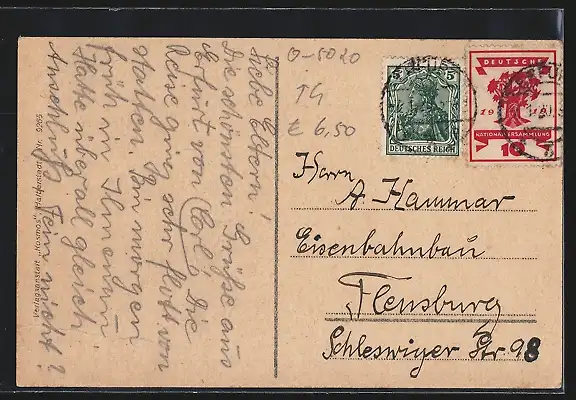 Liebe Eltern!
Die schönsten Grüße aus
Erfurt von Carl. Die
Reise ging sehr flott von
statten. Bin morgen
früh in Ilmenau
Hatte überall gleich
Anschluß. Fein nicht?
Verlagsanstalt „Kosmos“, Halberstadt Nr. 9205
0-5020
TG
€ 6,50
5 5
DEUTSCHES REICH
DEUTSCHE
1919
NATIONALVERSAMMLUNG
10
Herrn
A. Hammar
Eisenbahnbau
Flensburg
Schleswiger Str. 98